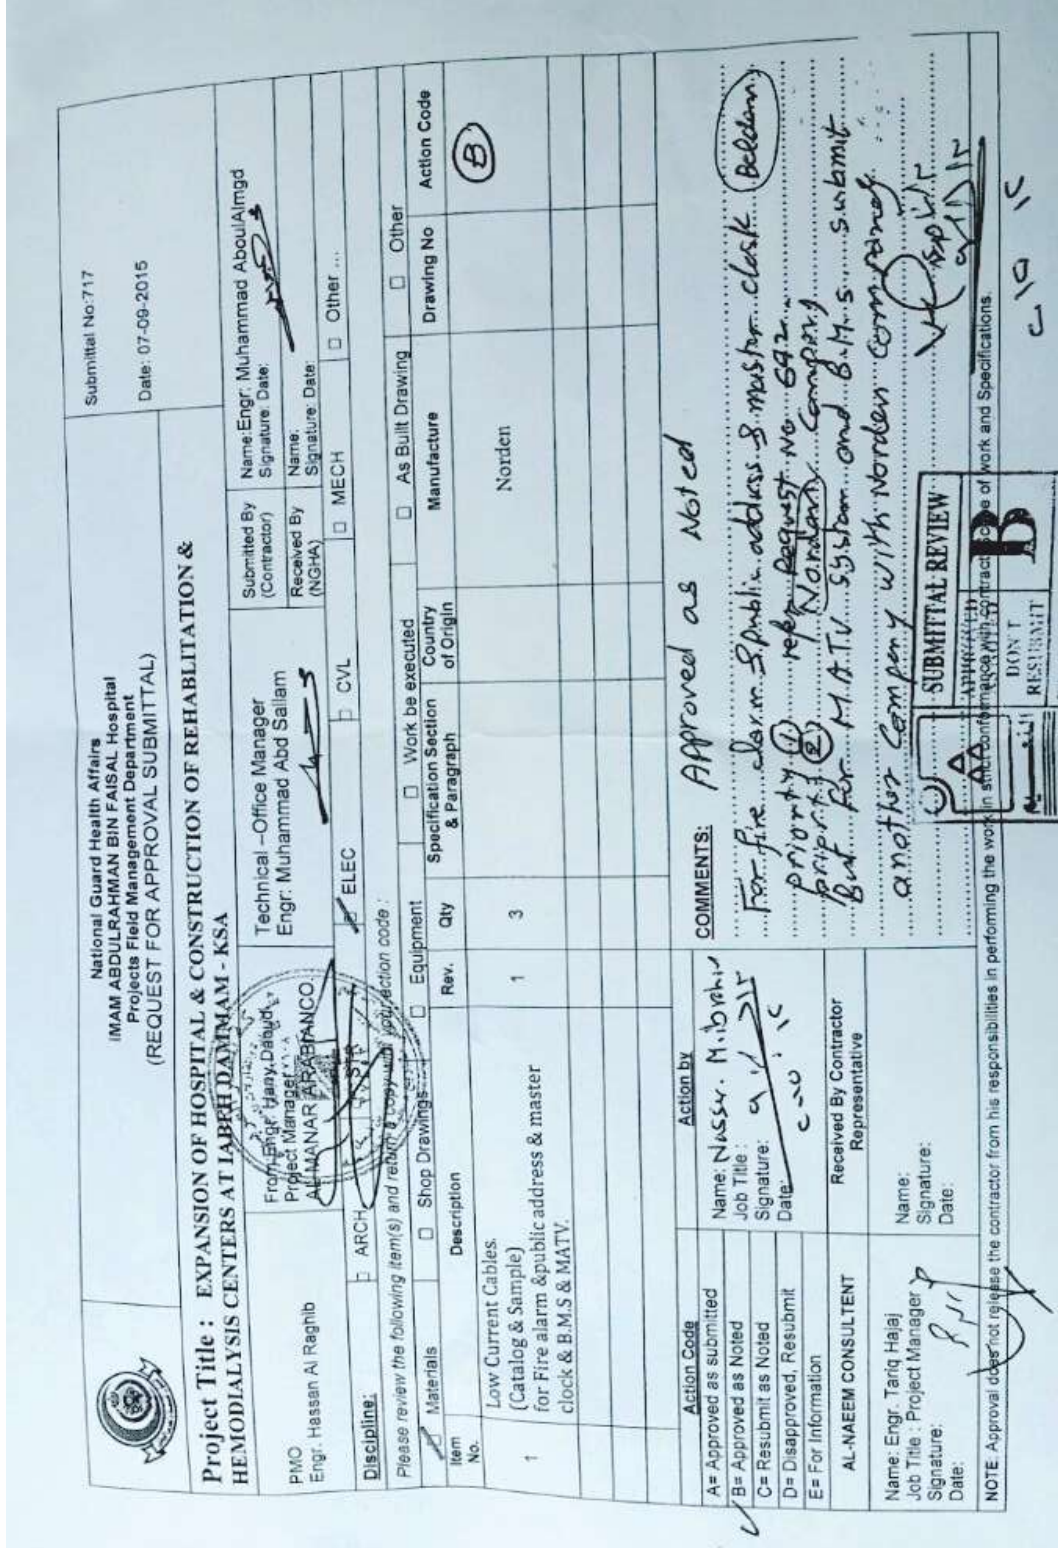 National Guard Health Affairs
IMAM ABDULRAHMAN BIN FAISAL Hospital
Projects Field Management Department
(REQUEST FOR APPROVAL SUBMITTAL)
Submittal No:717
Date: 07-09-2015
Project Title : EXPANSION OF HOSPITAL & CONSTRUCTION OF REHABLITATION &
HEMODIALYSIS CENTERS AT IABFH DAMMAM - KSA
PMO
Engr. Hassan Al Raghib
From Engr. Hany Daoud
Project Manager
AL MANAR ARABIANCO.
Technical –Office Manager
Engr: Muhammad Abd Sallam
Submitted By
(Contractor)
Name:Engr: Muhammad AboulAlmgd
Signature: Date:
Received By
(NGHA)
Name:
Signature: Date:
Discipline: ARCH STR ELEC CVL MECH Other ...
Please review the following item(s) and return a copy with your action code :
Materials Shop Drawings Equipment Work be executed As Built Drawing Other
Item No. Description Rev. Qty Specification Section & Paragraph Country of Origin Manufacture Drawing No Action Code
1 Low Current Cables. 1 3 Norden B
(Catalog & Sample)
for Fire alarm &public address & master
clock & B.M.S & MATV.
Action Code
A= Approved as submitted
B= Approved as Noted
C= Resubmit as Noted
D= Disapproved, Resubmit
E= For Information
Action by
Name: Nasser. M. ibrahim
Job Title :
Signature:
Date:
COMMENTS: Approved as Noted
For fire alarm & public address & master clock Beldam
priority 1 refer Request No 692
priority 2 Nordan Company
But for M.A.T.V system and B.M.S submit
another company with Norden company
AL-NAEEM CONSULTENT
Received By Contractor
Representative
Name: Engr. Tariq Hajaj
Job Title : Project Manager
Signature:
Date:
Name:
Signature:
Date:
SUBMITTAL REVIEW
B
DON'T
RESUBMIT
NOTE: Approval does not release the contractor from his responsibilities in performing the work in strict conformance with contract scope of work and Specifications.